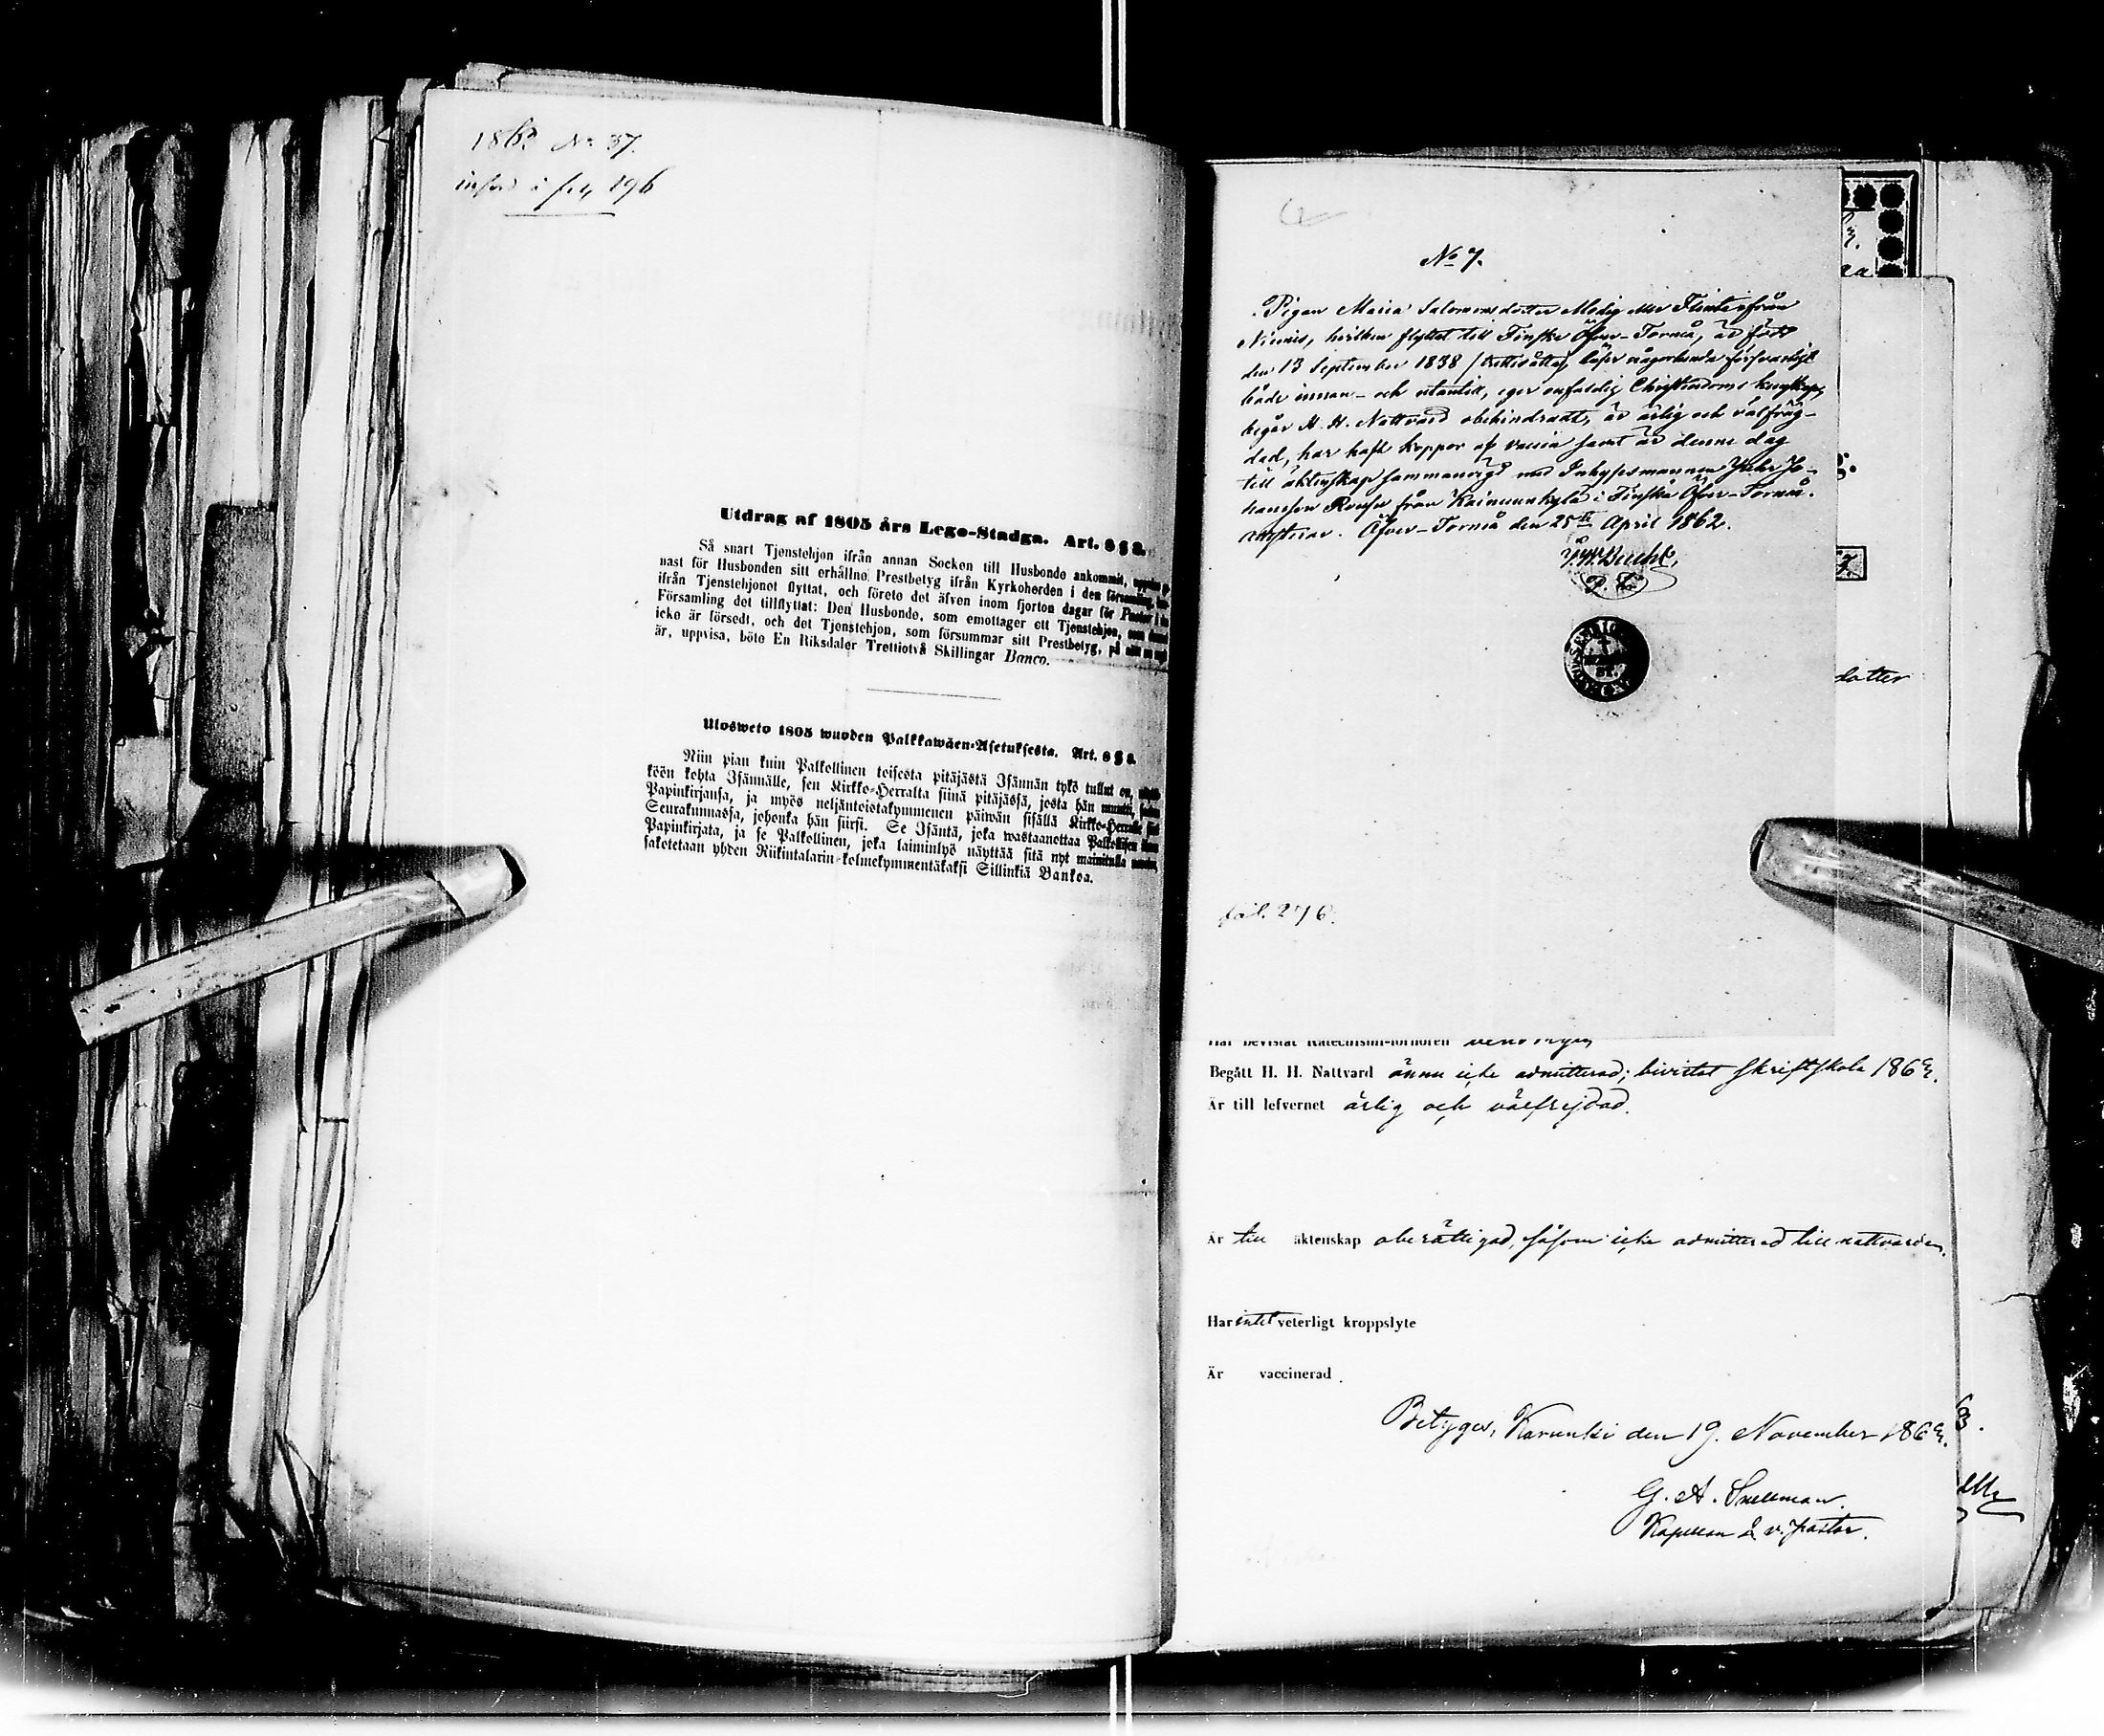 1862 No 37.
införd i fol. 196
Utdrag af 1805 års Lego-Stadga. Art. 8 § 8.
Så snart Tjenstehjon ifrån annan Socken till Husbonde ankommit,
nast för Husbonden sitt erhållne Prestbetyg ifrån Kyrkoherden i den församling,
ifrån Tjenstehjonet flyttat, och förete det äfven inom fjorton dagar för Pastor i
Församling det tillflyttat: Den Husbonde, som emottager ett Tjenstehjon, som
icke är försedt, och det Tjenstehjon, som försummar sitt Prestbetyg, på
är, uppvisa, böte En Riksdaler Trettiotvå Skillingar Banco.
Ulosweto 1805 wuoden Palkkawäen-Asetuksesta. Art. 8 § 8.
Niin pian kuin Palkollinen toisesta pitäjästä Isännän tykö tullut on,
köön kohta Isännälle, sen Kirkko-Herralta siinä pitäjässä, josta hän muutti,
Papinkirjansa, ja myös neljäntoistakymmenen päiwän sisällä Kirkko-Herralle
Seurakunnassa, johonka hän siirsi. Se Isäntä, joka wastaanottaa Palkollisen
Papinkirjata, ja se Palkollinen, joka laiminlyö näyttää sitä nyt mainitulla
sakotetaan yhden Riikintalarin kolmekymmentäkaksi Sillinkiä Bankoa.
No 7.
Pigan Maria Salomonsdotter Modig eller Flinta från
Niemis, hvilken flyttat till Finska Öfver-Torneå, är född
den 13 September 1838 (trettioåtta), läser någorlunda försvarligt
både innan- och utantill, eger enfaldig Christendoms kunskap,
begår H. H. Nattvard obehindradt, är ärlig och välfräg-
dad, har haft koppor af vaccin samt är denna dag
till äktenskap sammanvigd med Inhysesmannen Johan Jo-
hansson Rousu från Kainuunkylä i Finska Öfver-Torneå.
attesterar. Öfver-Torneå den 25te April 1862.
P. L.
fol. 276.
Har bevistat Katechismi-förhören
Begått H. H. Nattvard ännu icke admitterad; bevistat skriftskola 1862.
Är till lefvernet ärlig och välfrejdad.
Är till äktenskap oberättigad, såsom icke admitterad till nattvarden.
Har intet veterligt kroppslyte
Är vaccinerad.
Betygar, Karunki den 19. November 1862.
G. A. Snellman.
Kapellan & v. pastor.
dotter